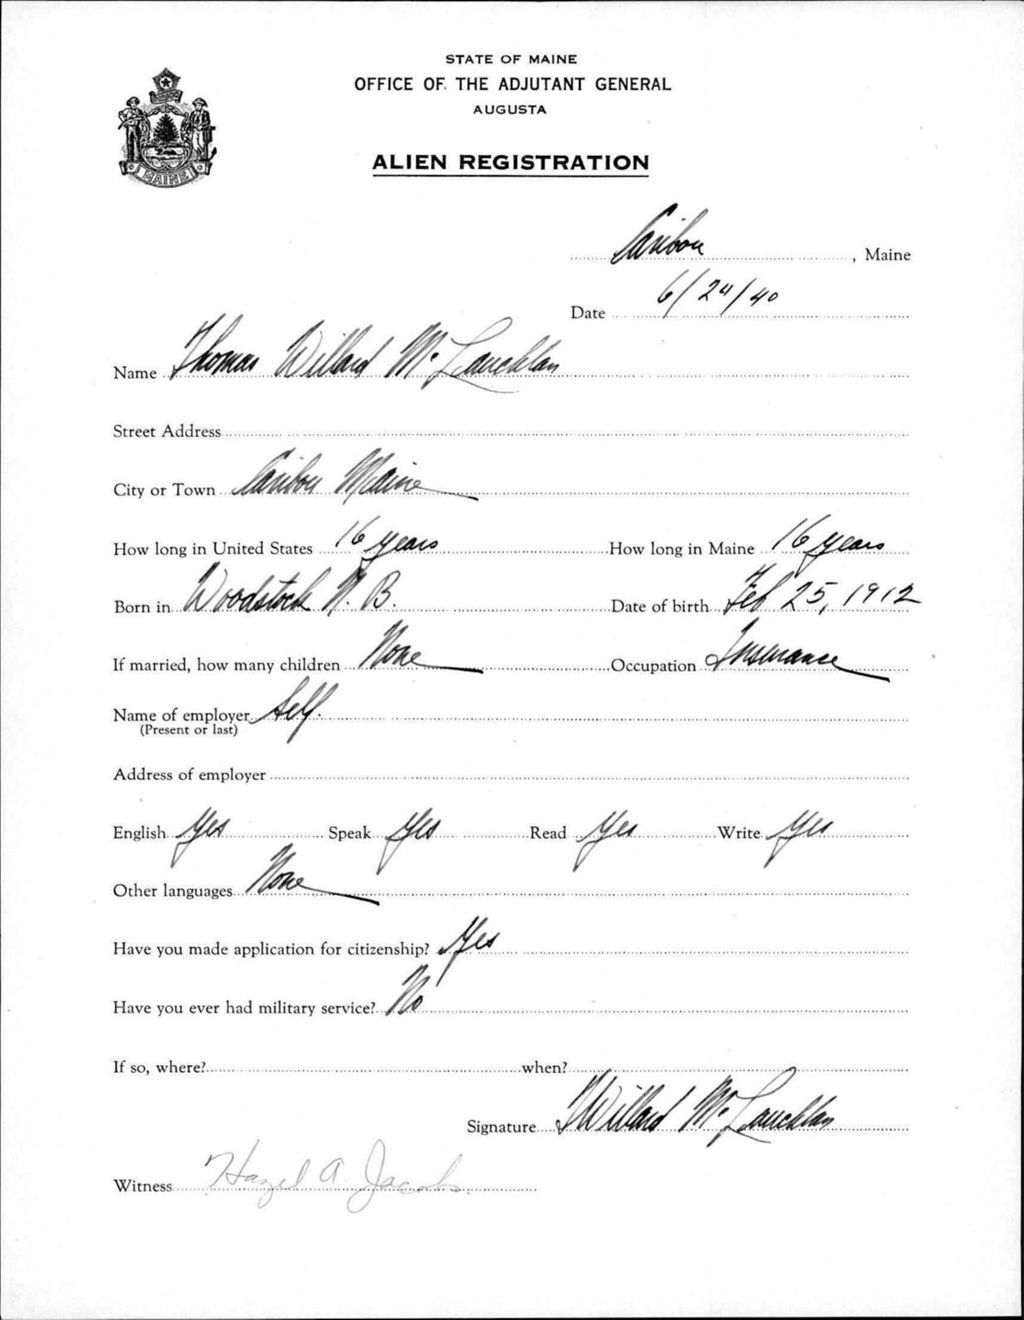 STATE OF MAINE
OFFICE OF THE ADJUTANT GENERAL
AUGUSTA
ALIEN REGISTRATION
MAINE
Caribou, Maine
Date 6/24/40
Name Thomas Willard McLauchlan
Street Address
City or Town Caribou Maine
How long in United States 16 years How long in Maine 16 years
Born in Woodstock N.B. Date of birth Feb 25, 1912
If married, how many children None Occupation Insurance
Name of employer Self.
(Present or last)
Address of employer
English Yes Speak Yes Read Yes Write Yes
Other languages None
Have you made application for citizenship? Yes
Have you ever had military service? No
If so, where? when?
Signature T Willard McLauchlan
Witness Hazel A Jacobs